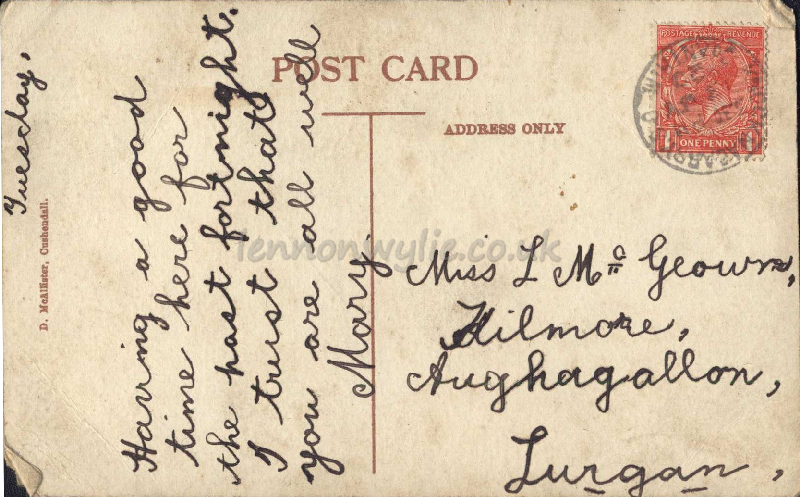 POST CARD
ADDRESS ONLY
POSTAGE REVENUE
ONE PENNY
1 1
D. McAllister, Cushendall.
Tuesday,
Having a good
time here for
the past fortnight.
I trust that
you are all well
Mary
Miss L Mc Geown,
Kilmore,
Aughagallon,
Lurgan,
lennonwylie.co.uk